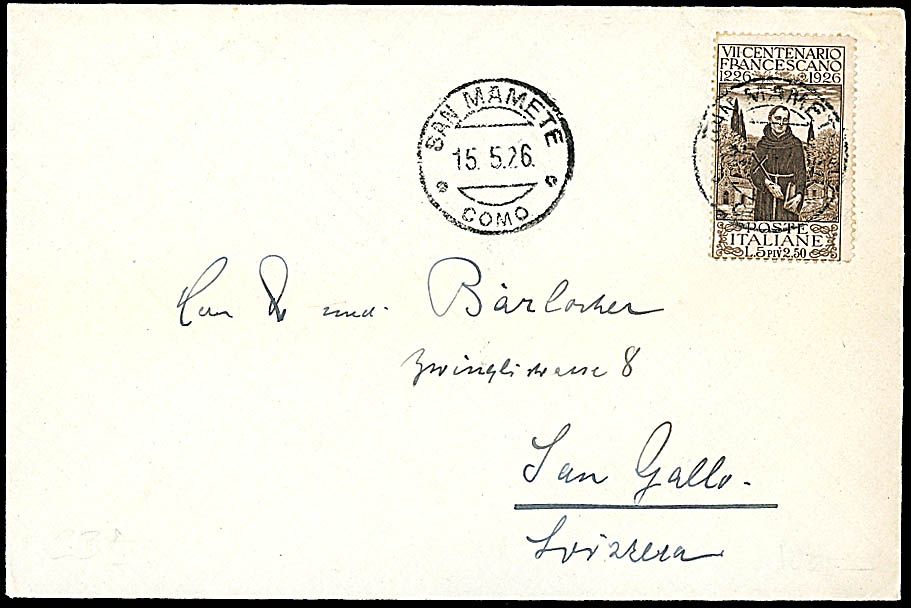 VII CENTENARIO
FRANCESCANO
1226 1926
SAN MAMETE
15.5.26.
COMO
SAN MAMET
POSTE
ITALIANE
L.5 PIV 2.50
Herr Dr med. Bärlocher
Zwinglistrasse 8
San Gallo.
Svizzera